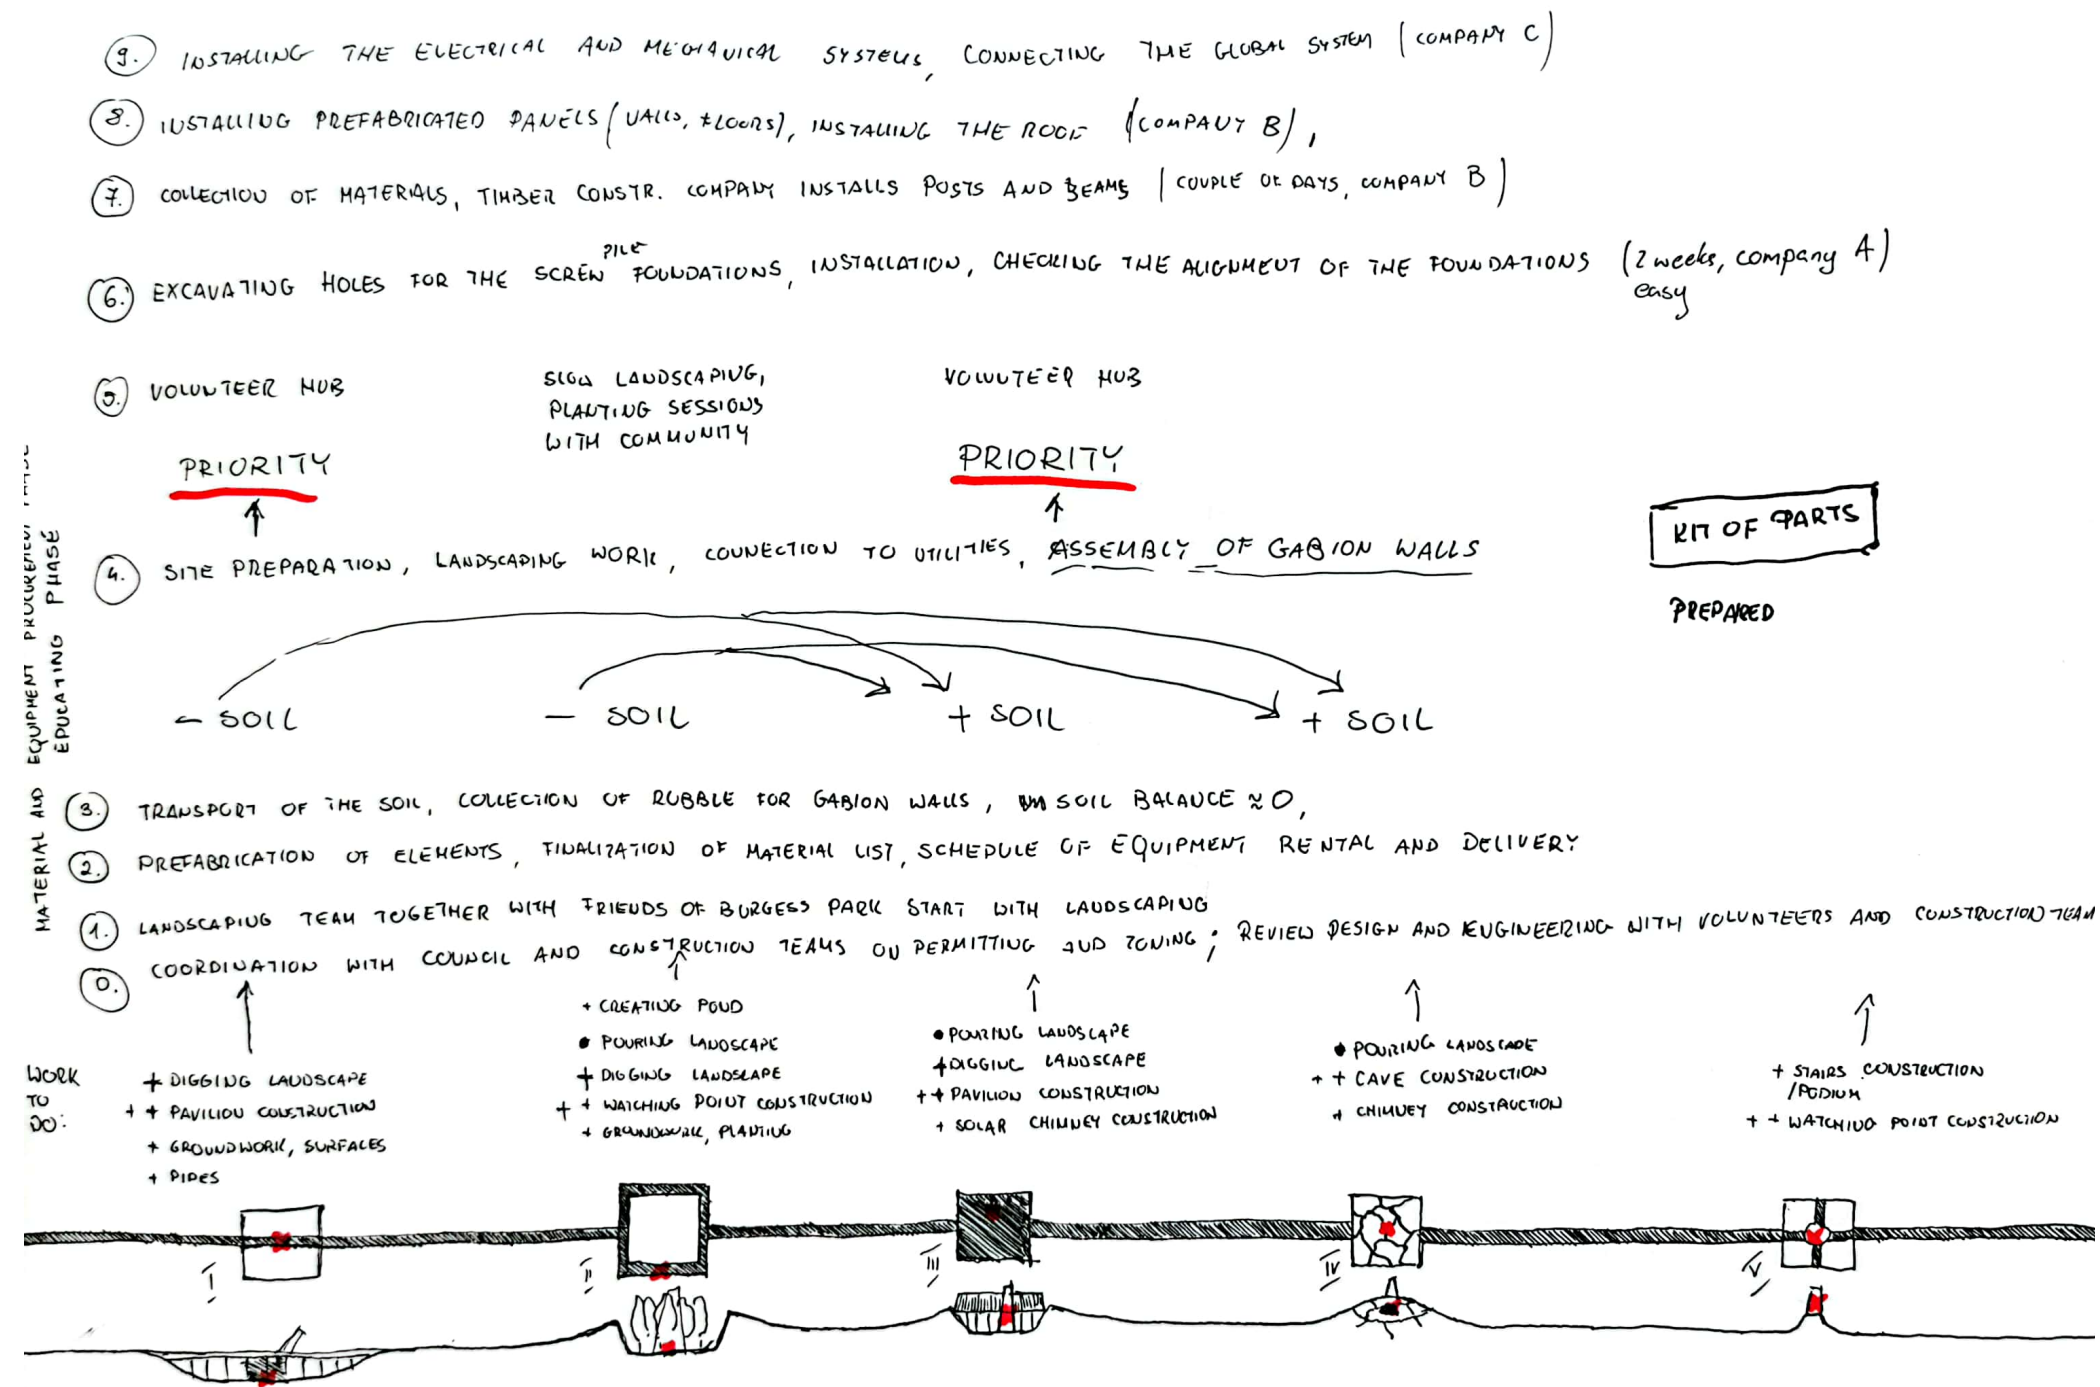 9. INSTALLING THE ELECTRICAL AND MECHANICAL SYSTEMS, CONNECTING THE GLOBAL SYSTEM (COMPANY C)
8. INSTALLING PREFABRICATED PANELS (WALLS, FLOORS), INSTALLING THE ROOF (COMPANY B),
7. COLLECTION OF MATERIALS, TIMBER CONSTR. COMPANY INSTALLS POSTS AND BEAMS (COUPLE OF DAYS, COMPANY B)
6. EXCAVATING HOLES FOR THE SCREW PILE FOUNDATIONS, INSTALLATION, CHECKING THE ALIGNMENT OF THE FOUNDATIONS (2 weeks, company A)
easy
5. VOLUNTEER HUB
PRIORITY
SLOW LANDSCAPING,
PLANTING SESSIONS
WITH COMMUNITY
VOLUNTEER HUB
PRIORITY
4. SITE PREPARATION, LANDSCAPING WORK, CONNECTION TO UTILITIES, ASSEMBLY OF GABION WALLS
KIT OF PARTS
PREPARED
- SOIL
- SOIL
+ SOIL
+ SOIL
3. TRANSPORT OF THE SOIL, COLLECTION OF RUBBLE FOR GABION WALLS, SOIL BALANCE ≈ 0,
2. PREFABRICATION OF ELEMENTS, FINALIZATION OF MATERIAL LIST, SCHEDULE OF EQUIPMENT RENTAL AND DELIVERY
1. LANDSCAPING TEAM TOGETHER WITH FRIENDS OF BURGESS PARK START WITH LANDSCAPING
0. COORDINATION WITH COUNCIL AND CONSTRUCTION TEAMS ON PERMITTING AND ZONING; REVIEW DESIGN AND ENGINEERING WITH VOLUNTEERS AND CONSTRUCTION TEAM
MATERIAL AND EQUIPMENT PROCUREMENT PHASE
EDUCATING PHASE
WORK
TO
DO:
+ DIGGING LANDSCAPE
+ + PAVILION CONSTRUCTION
+ GROUNDWORK, SURFACES
+ PIPES
+ CREATING POND
• POURING LANDSCAPE
+ DIGGING LANDSCAPE
+ + WATCHING POINT CONSTRUCTION
+ GROUNDWORK, PLANTING
• POURING LANDSCAPE
+ DIGGING LANDSCAPE
+ + PAVILION CONSTRUCTION
+ SOLAR CHIMNEY CONSTRUCTION
• POURING LANDSCAPE
+ + CAVE CONSTRUCTION
+ CHIMNEY CONSTRUCTION
+ STAIRS CONSTRUCTION
/PODIUM
+ + WATCHING POINT CONSTRUCTION
I
II
III
IV
V